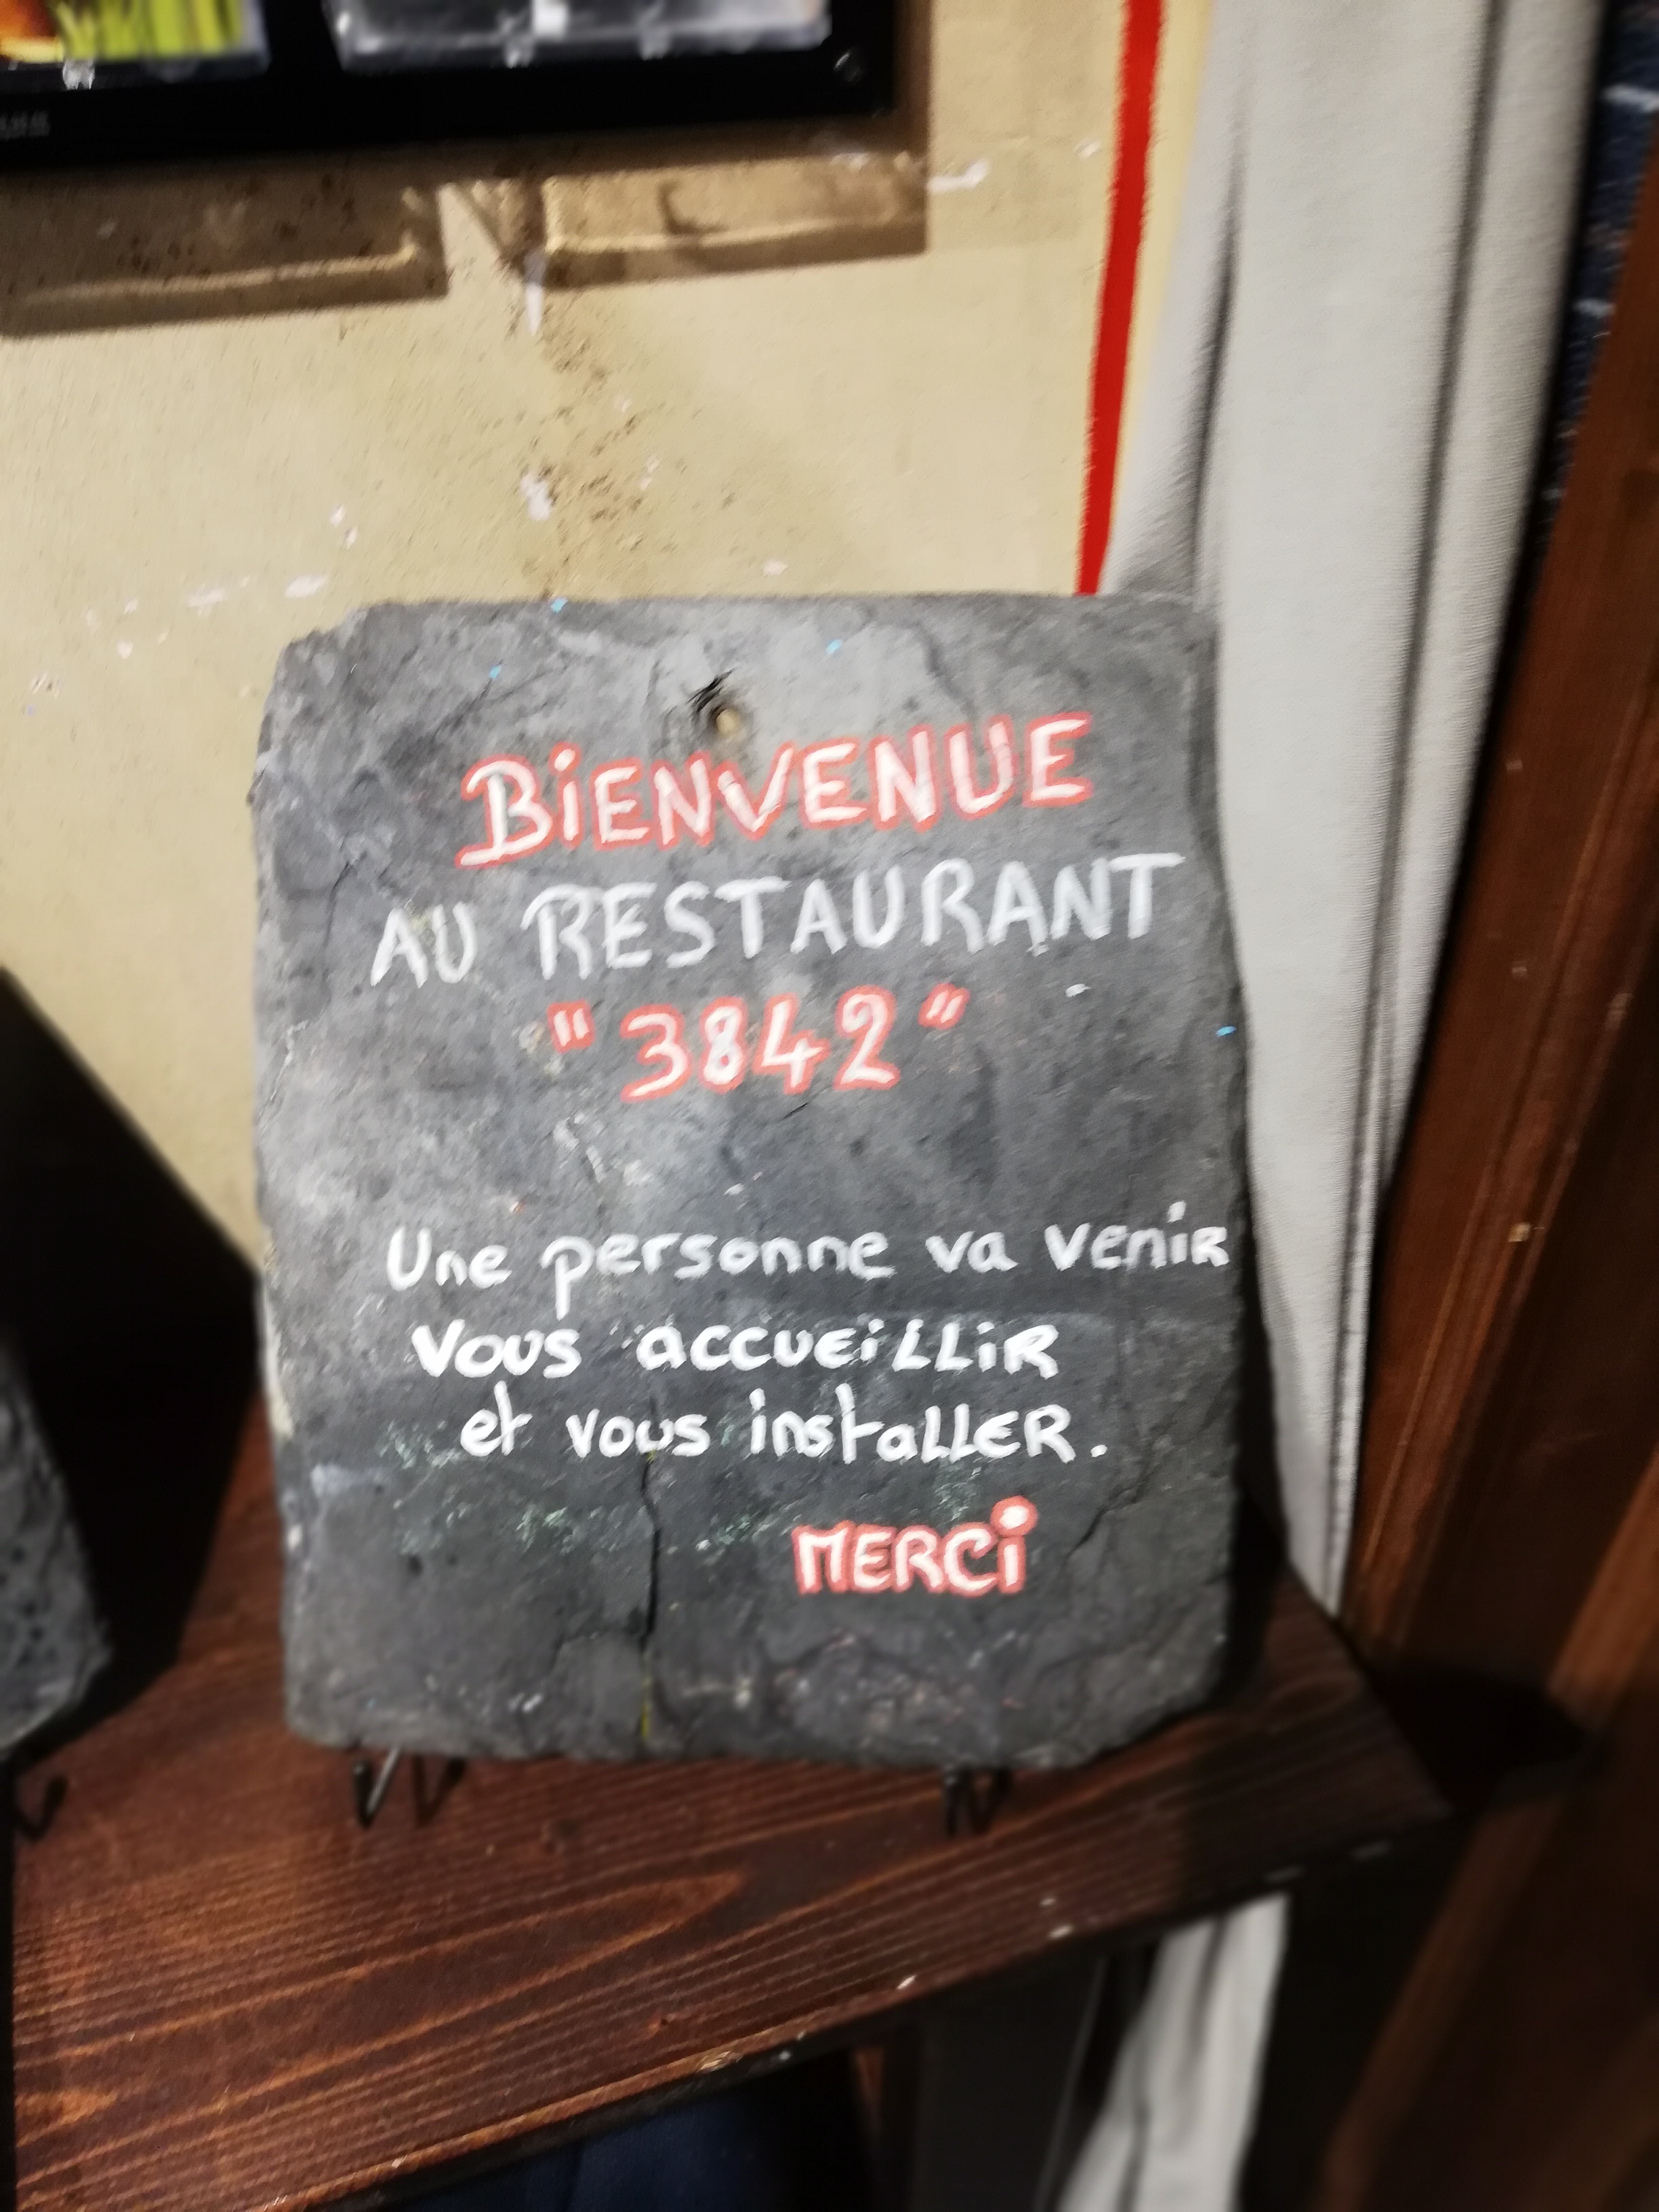 BiENVENUE
AU RESTAURANT
"3842"
Une personne va veniR
vous accueiLLiR
et vous instaLLER.
MERCi